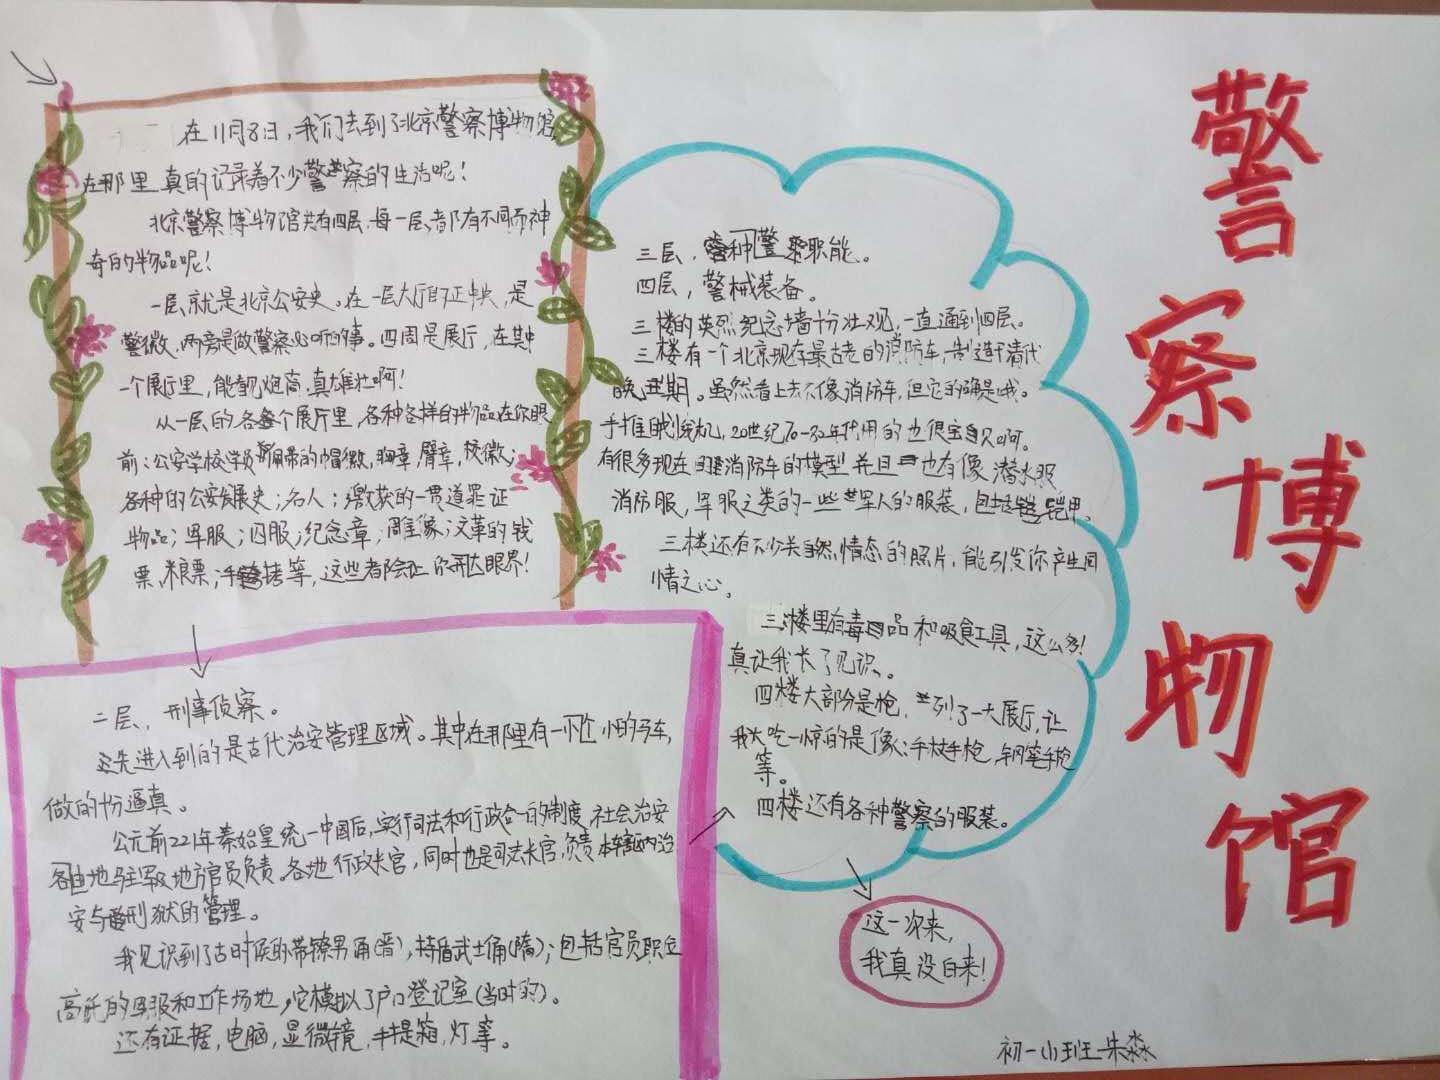 警察博物馆
在11月8日，我们去到了北京警察博物馆，
在那里真的记录着不少警察的生活呢！
北京警察博物馆共有四层，每一层都有不同而神
奇的物品呢！
一层，就是北京公安史。在一层大厅的正中央，是
警徽，两旁是做警察必的事。四周是展厅，在其中
一个展厅里，能观炮筒，真雄壮啊！
从一层的各个展厅里，各种各样的物品在你眼
前：公安学校学员佩带的帽徽，胸章，臂章，校徽；
各种的公安发展史；名人；缴获的一贯道罪证
物品；军服；囚服；纪念章，雕像；文革的钱
票，粮票；手铐等，这些都会让你开达眼界！
二层，刑事侦察。
先进入到的是古代治安管理区域。其中在那里有一个小的马车，
做的十份逼真。
公元前221年秦始皇统一中国后，实行司法和行政合一的制度，社会治安
由各地驻军及地方官员负责。各地行政长官，同时也是司法长官，负责本辖区内治
安与刑狱的管理。
我见识到了古时侯的带镣男俑(晋)，持盾武士俑(隋)；包括官员职位
高低的军服和工作场地，它模拟了户口登记室(当时的)。
还有证据，电脑，显微镜，手提箱，灯等。
三层，各种警察职能。
四层，警械装备。
三楼的英烈纪念墙十分壮观，一直通到四层。
三楼有一个北京现存最古老的消防车，制造于清代
晚期。虽然看上去不像消防车，但它的确是哦。
手推划线机，20世纪70-80年代用的也很宝贝啊。
有很多现在消防车的模型并且也有像潜水服
消防服，军服之类的一些军人的服装，包括铠甲。
三楼还有不少关自然情态的照片，能引发你产生同
情之心。
三楼里有毒品和吸食工具，这么多！
真让我长了见识。
四楼大部分是枪，列了一大展厅，让
我大吃一惊的是像：手杖手枪，钢笔手枪
等。
四楼还有各种警察的服装。
这一次来，
我真没白来！
初一小班 朱淼